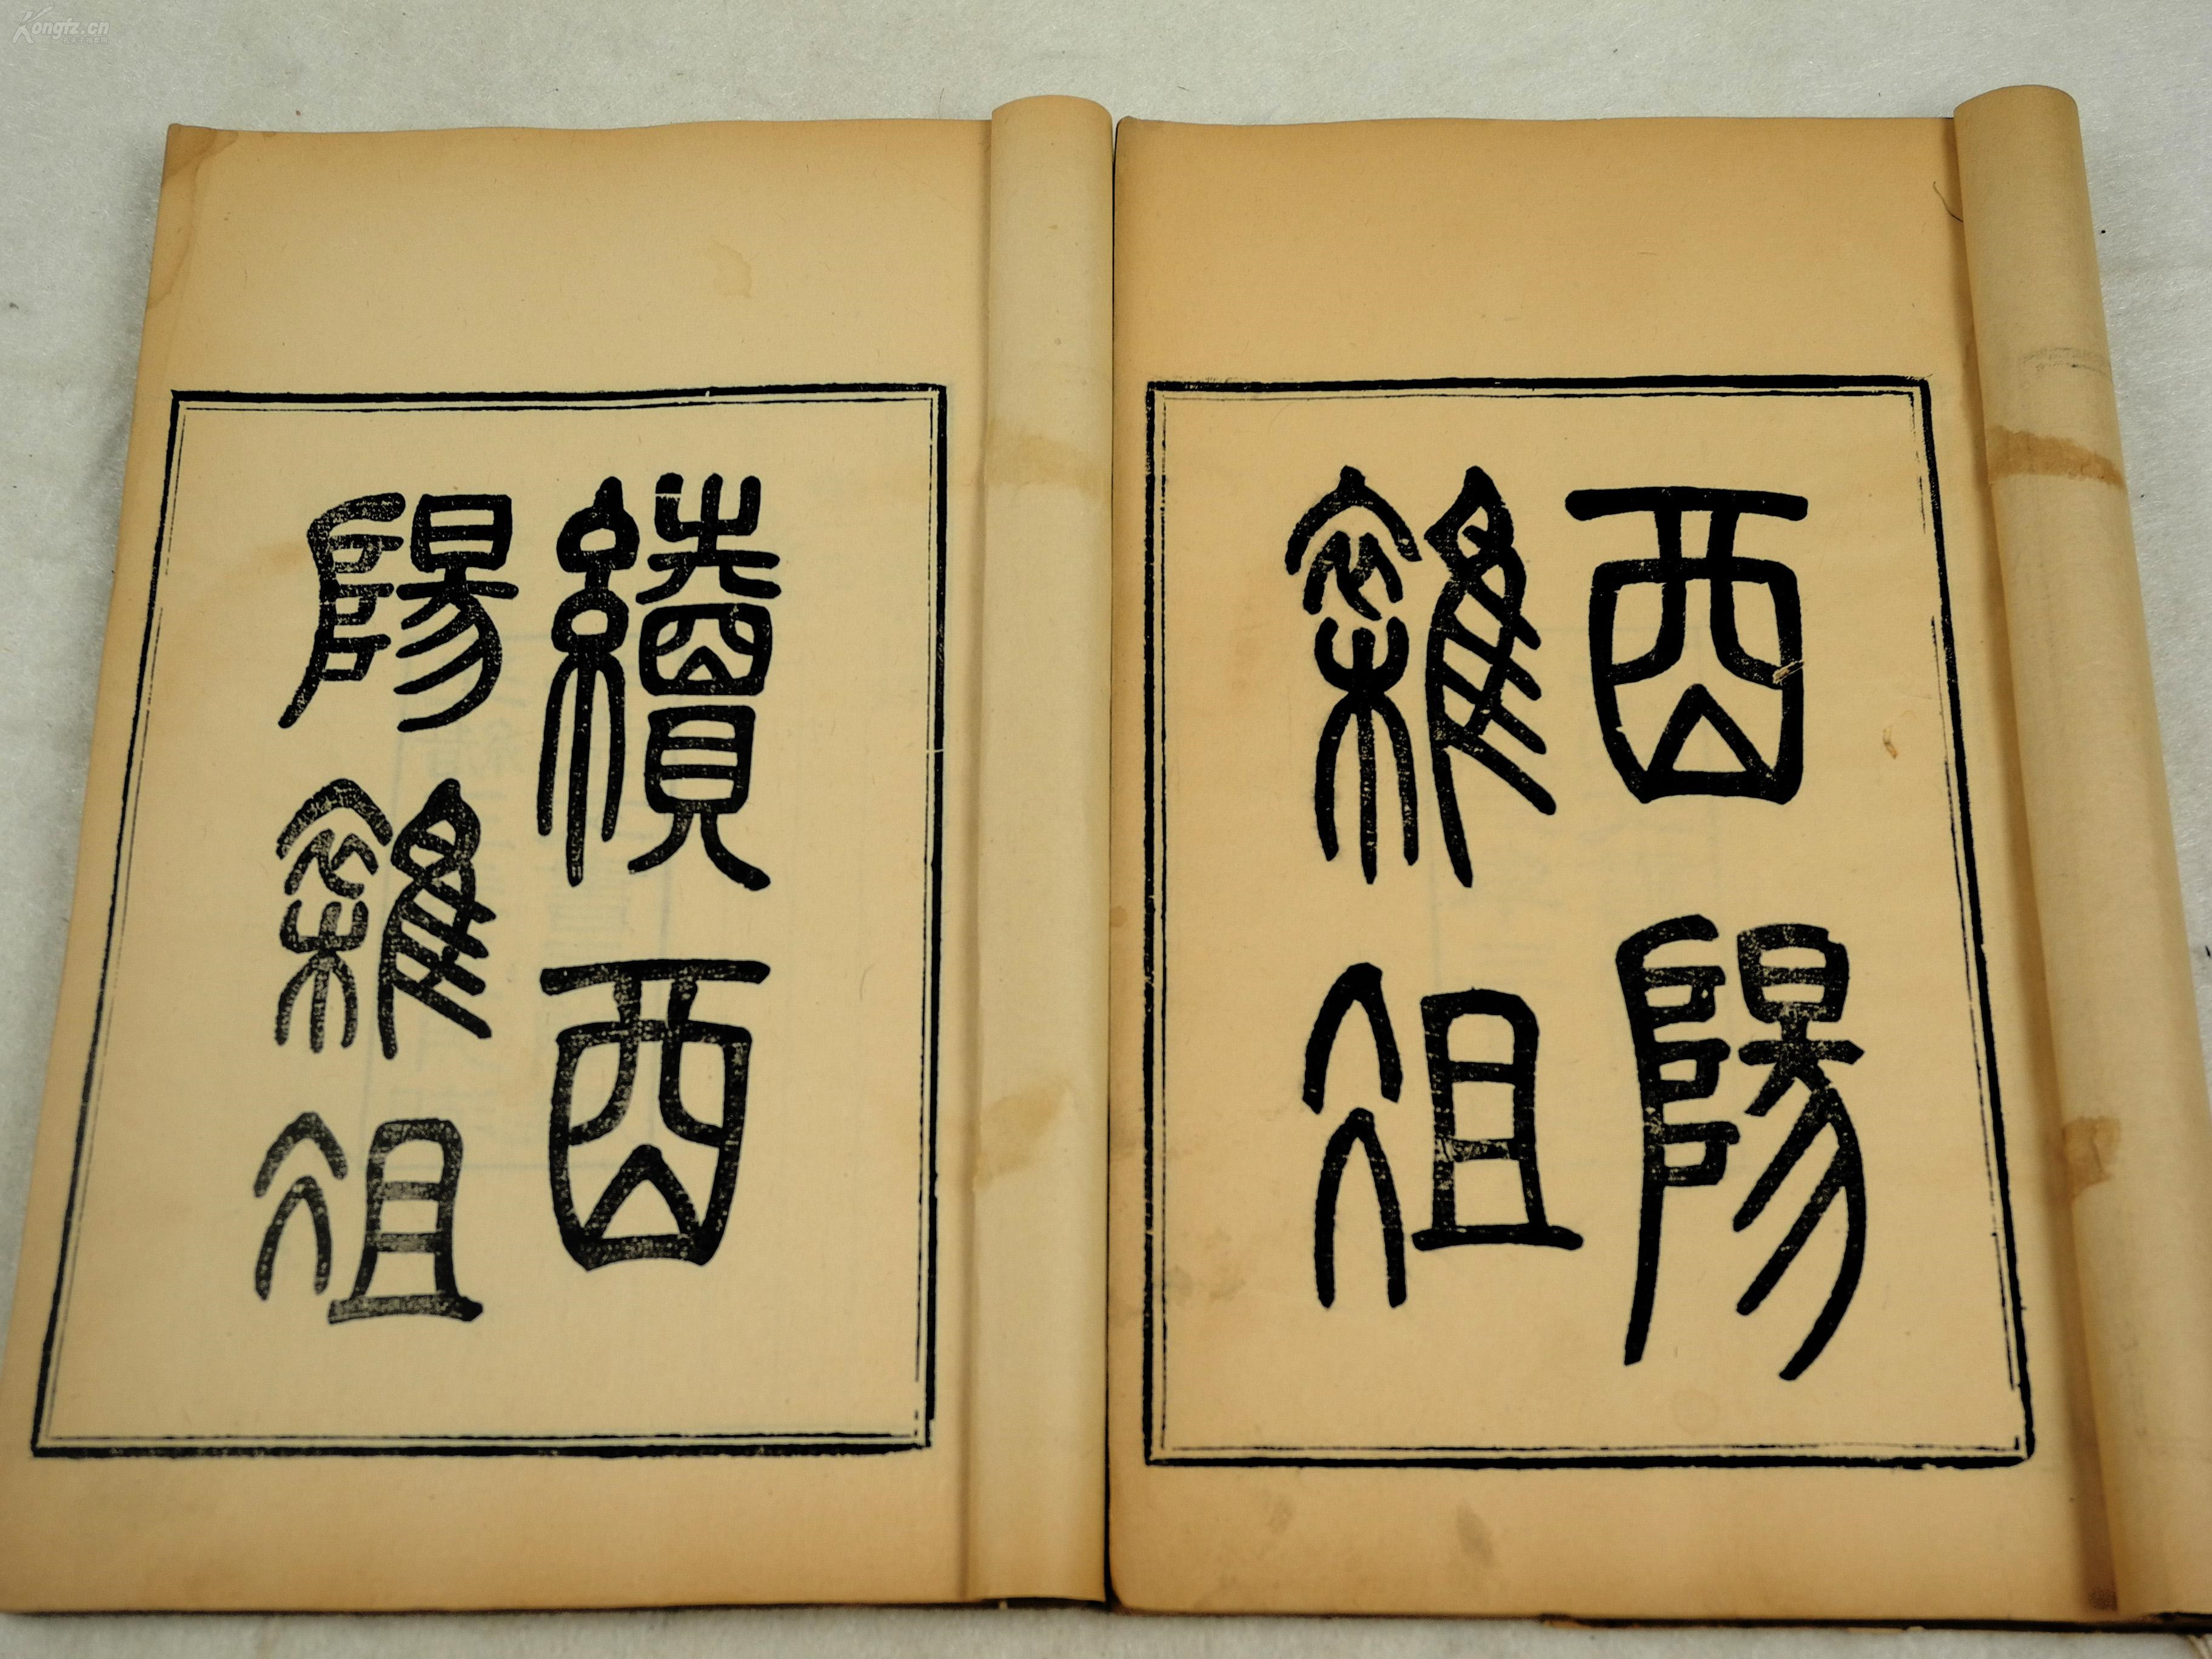 酉陽
雜俎
續酉
陽雜俎
Kongfz.cn